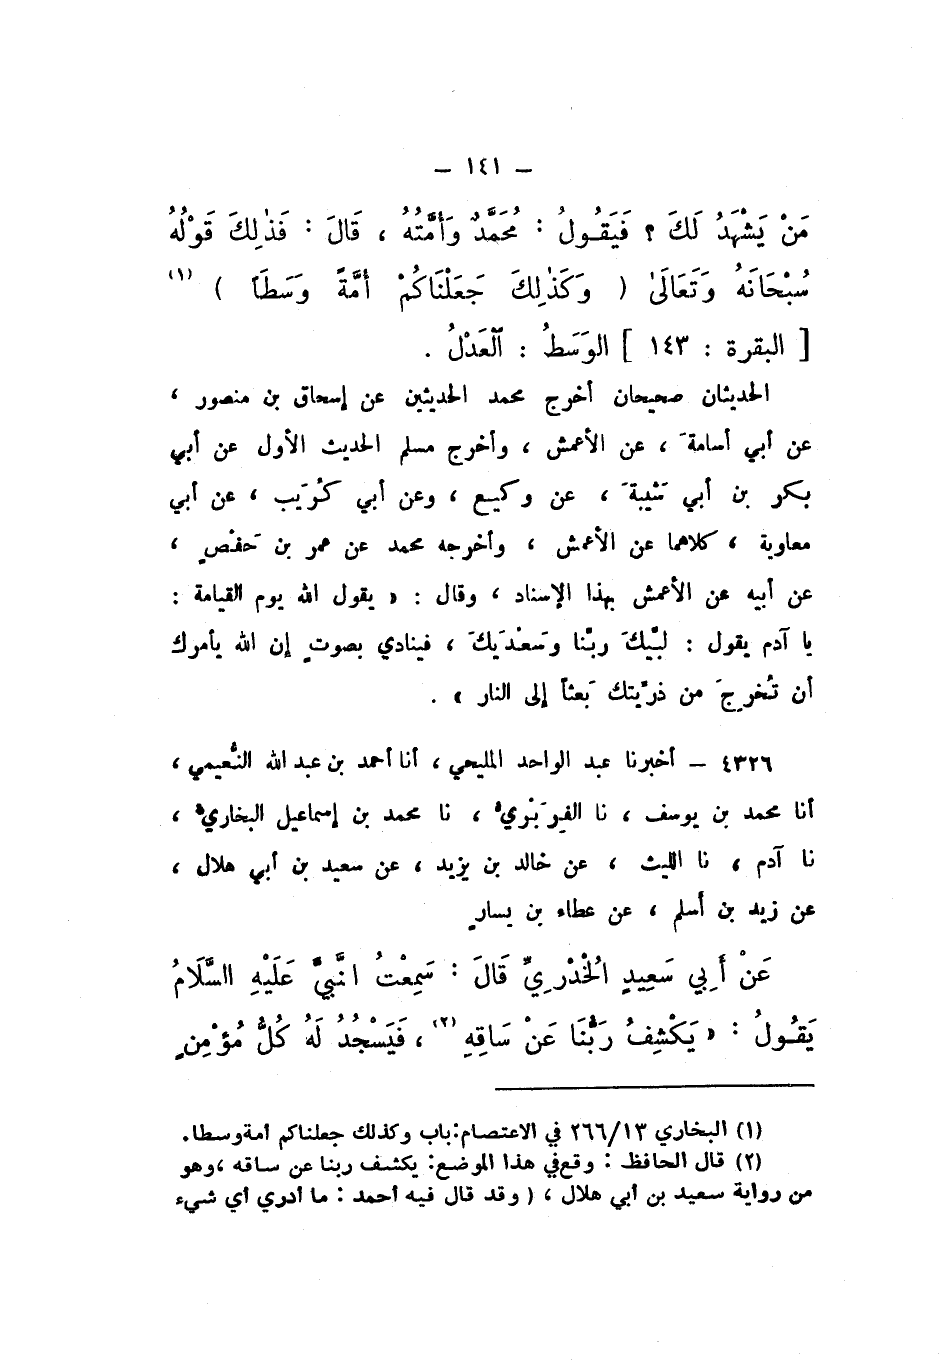 – ١٤١ –
مَنْ يَشْهَدُ لَكَ ؟ فَيَقُولُ : مُحَمَّدٌ وَأُمَّتُهُ ، قَالَ : فَذٰلِكَ قَوْلُهُ
سُبْحَانَهُ وَتَعَالَىٰ ( وَكَذٰلِكَ جَعَلْنَاكُمْ أُمَّةً وَسَطَاً ) (١)
[ البقرة : ١٤٣ ] الوَسَطُ : اَلْعَدْلُ .
الحديثان صحيحان أخرج محمد الحديثين عن إسحاق بن منصور ،
عن أبي أسامةَ ، عن الأعمش ، وأخرج مسلم الحديث الأول عن أبي
بكر بن أبي شَيبةَ ، عن وكيع ، وعن أبي كُرَيب ، عن أبي
معاوية ، كلاهما عن الأعمش ، وأخرجه محمد عن عمر بن حَفْصٍ ،
عن أبيه عن الأعمش بهذا الإسناد ، وقال : « يقول الله يوم القيامة :
يا آدم يقول : لبَّيكَ ربَّنا وسَعْدَيكَ ، فينادي بصوتٍ إن الله يأمرك
أن تُخرِجَ من ذرّيتك بَعثاً إلى النار » .
٤٣٢٦ – أخبرنا عبد الواحد المليحي ، أنا أحمد بن عبد الله النُّعيمي ،
أنا محمد بن يوسف ، نا الفِرَبْرِي ، نا محمد بن إسماعيل البخاري ،
نا آدم ، نا الليث ، عن خالد بن يزيد ، عن سعيد بن أبي هلال ،
عن زيد بن أسلم ، عن عطاء بن يسارٍ
عَنْ أَبِي سَعِيدٍ الْخُدْرِيِّ قَالَ : سَمِعْتُ النَّبِيَّ عَلَيْهِ السَّلَامُ
يَقُولُ : « يَكْشِفُ رَبُّنَا عَنْ سَاقِهِ (٢) ، فَيَسْجُدُ لَهُ كُلُّ مُؤْمِنٍ
(١) البخاري ٢٦٦/١٣ في الاعتصام : باب وكذلك جعلناكم أمة وسطا .
(٢) قال الحافظ : وقع في هذا الموضع : يكشف ربنا عن ساقه ، وهو
من رواية سعيد بن أبي هلال ، ( وقد قال فيه أحمد : ما أدري أي شيء